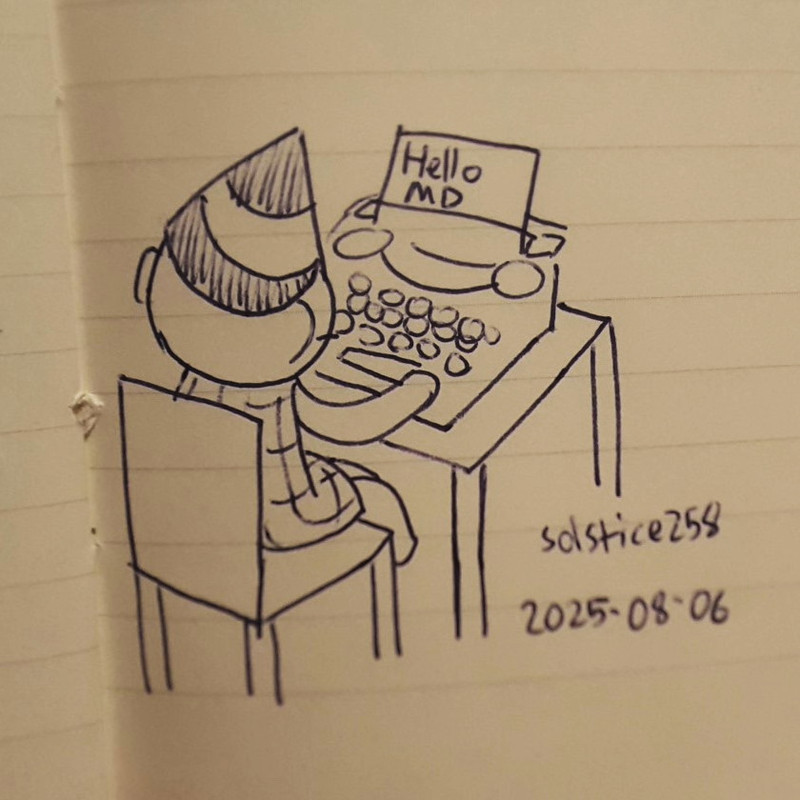 Hello
MD
solstice258
2025-08-06